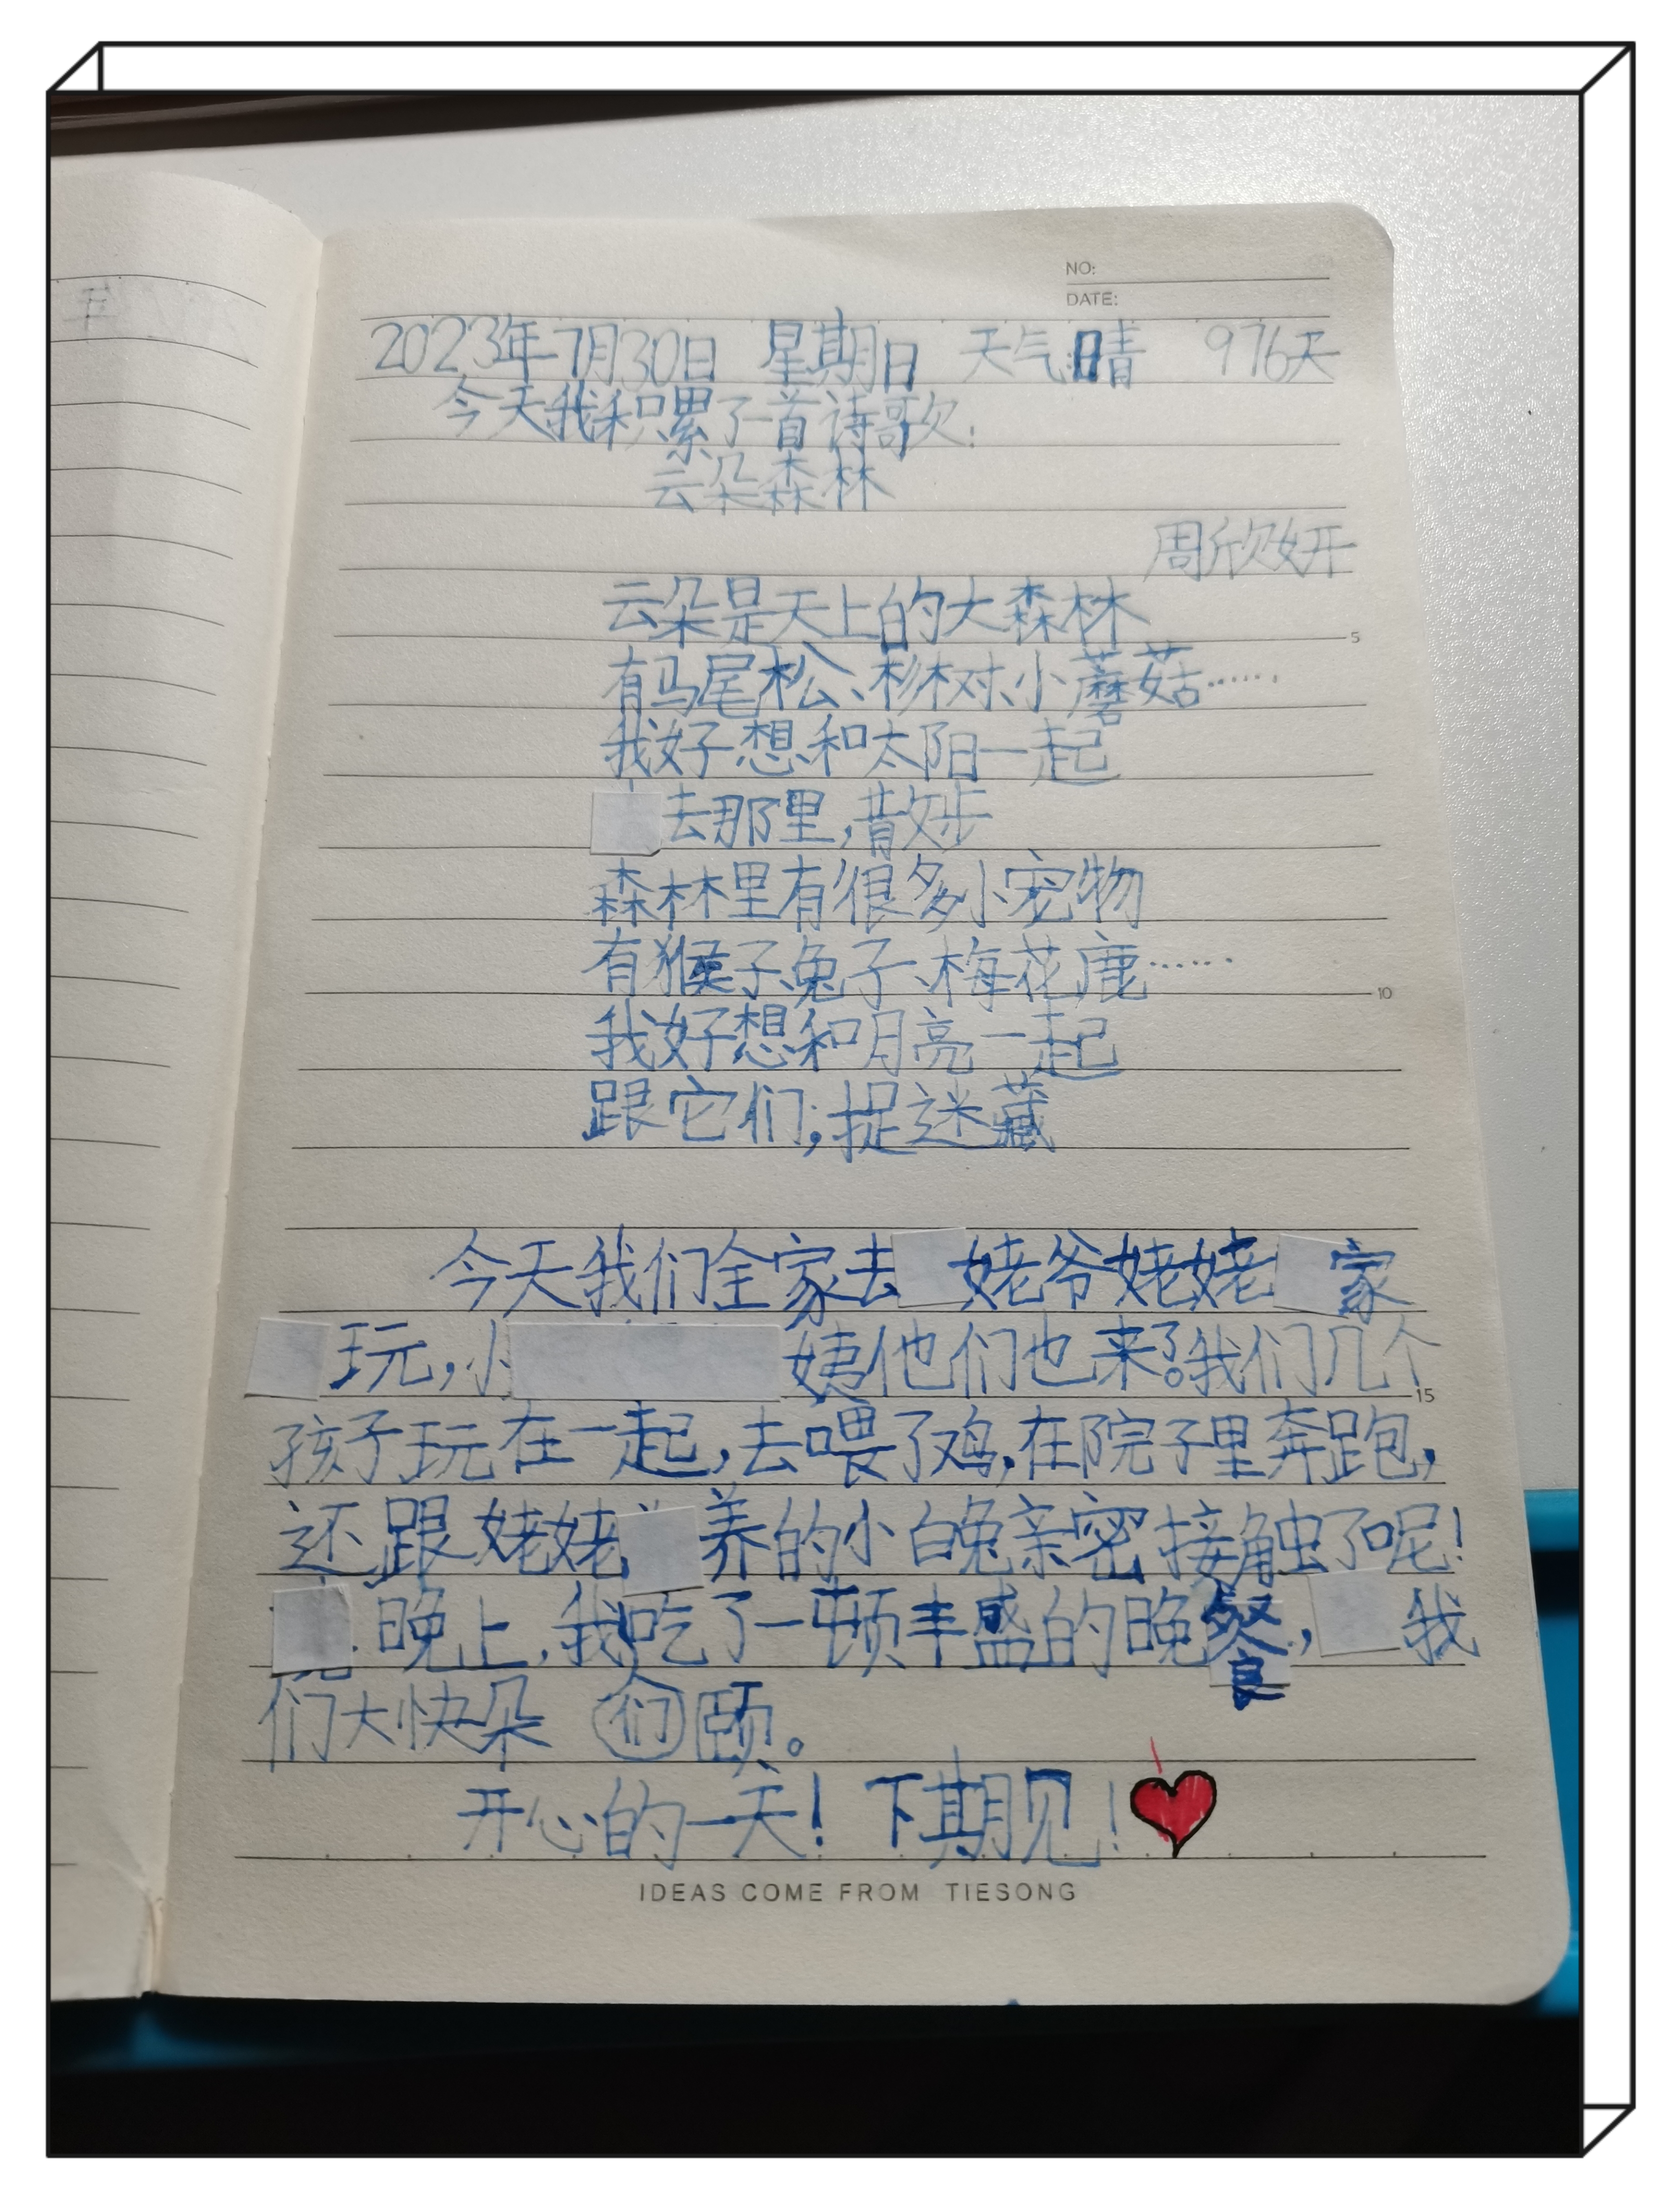 NO:
DATE:
2023年7月30日 星期日 天气:晴 976天
今天我积累了一首诗歌:
云朵森林
周欣妍
云朵是天上的大森林
5
有马尾松、杉树、小蘑菇……
我好想和太阳一起
去那里,散步
森林里有很多小宠物
有猴子、兔子、梅花鹿……
10
我好想和月亮一起
跟它们,捉迷藏
今天我们全家去姥爷姥姥家
玩,小姨他们也来了。我们几个
15
孩子玩在一起,去喂了鸡,在院子里奔跑,
还跟姥姥养的小白兔亲密接触了呢!
晚上,我吃了一顿丰盛的晚餐,我
们大快朵们颐。
开心的一天!下期见!
IDEAS COME FROM TIESONG